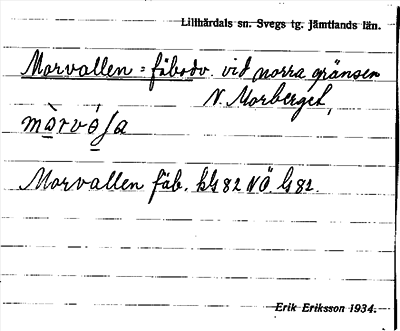 Lillhärdals sn. Svegs tg. jämtlands län.
Morvallen = fäbodv. vid norra gränsen
N. Morberget,
Morvallen fäb. kG 82 NÖ. G 82.
Erik Eriksson 1934.